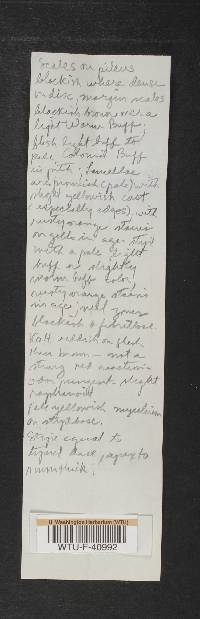 Scales on pileus
blackish where dense
on disc, margin scales
blackish brown over a
light Warm Buff;
flesh light buff to
pale Colonial Buff
in pith; Lamellae
are brownish (pale) with
slight yellowish cast
especially edges), with
rusty orange stains
on gills in age. Stipe
with a pale light
buff or slightly
warm buff color,
rusty orange stains
in age; veil zones
blackish & fibrillose.
KOH reddish on flesh
then brown - not a
strong red reaction.
Odor pungent - slight
raphanoid
pale yellowish mycelium
on stipe base.
Stipe equal to
tapered base,

U. Washington Herbarium (WTU)
WTU-F-40992